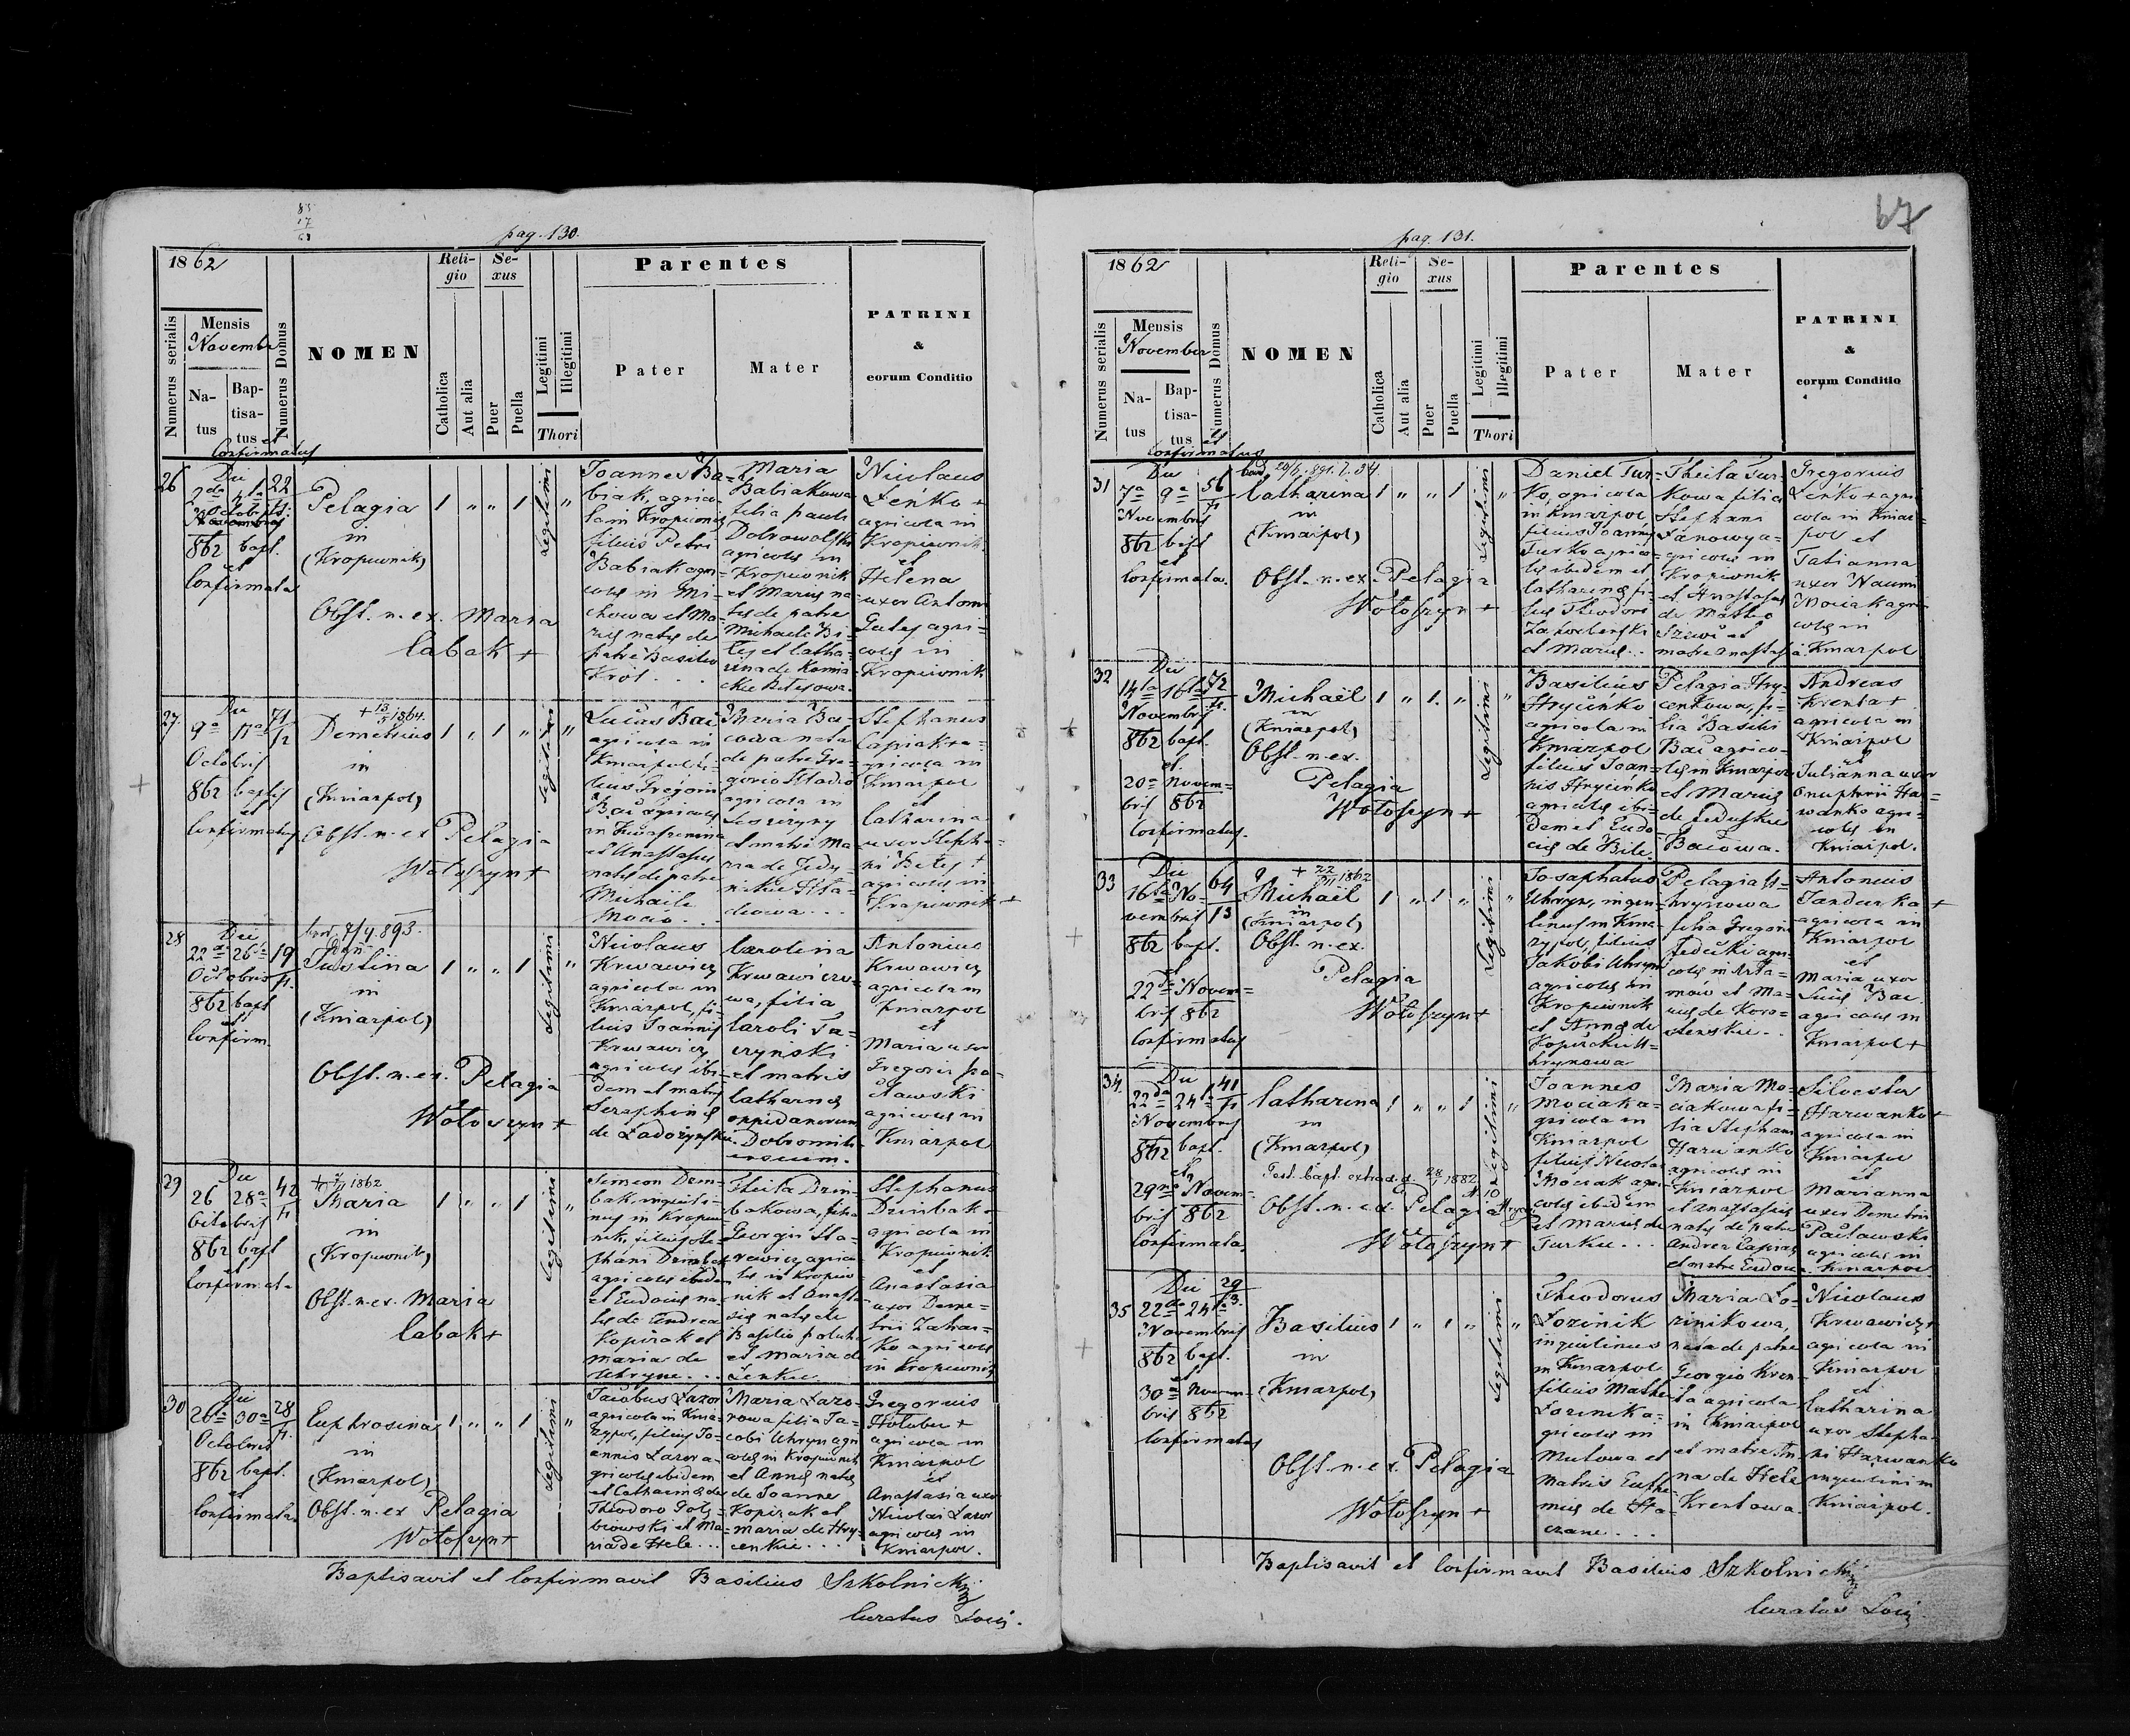 85
17
68
pag. 130.
1862
Reli-
gio
Se-
xus
Parentes
PATRINI
&
eorum Conditio
Numerus serialis
Mensis
Novembr
Na-
tus
Bap-
tisa-
tus et
Confirmatus
Numerus Domus
NOMEN
Catholica
Aut alia
Puer
Puella
Legitimi
Illegitimi
Thori
Pater
Mater
26
Die
2da 4ta 22
Octobris
Novembris
862 bapt.
et
Confirmata
Pelagia
in
(Kropiwnik)
Obst. n. ex. Maria
Cabak +
1 " " 1
Legitimi
"
Joannes Ba-
biak, agrico-
la in Kropiwnik
filius Petri
Babiak agri-
colæ in Mi-
chowa et Ma-
riæ natæ de
patre Basilio
Krol . . .
Maria
Babiakowa
filia Pauli
Dobrowolski
agricolæ in
Kropiwnik
et Mariæ na-
tæ de patre
Michaele Bi-
et Catha-
rina de
Nicolaus
Lenko +
agricola in
Kropiwnik
et
Helena
uxor Antoni
agri-
colæ in
Kropiwnik
27.
Die
9a 11a 71
Octobris
862 baptis
et
Confirmatus
+ 13/5 1864.
Demetrius
in
(Kniazpol)
Obst. n. ex Pelagia
Wołoszyn +
1 " 1 "
Legitimi
"
Lucas Bac
agricola in
Kniazpol fi-
lius Gregorii
Bac agricolæ
in
et Anastasiæ
natæ de patre
Michaele
Mocio . .
Maria Ba-
cowa nata
de patre Gre-
gorio
agricola in
et matre Ma-
ria de
Stephanus
Capiak a-
gricola in
Kniazpol
et
Catharina
uxor Stepha-
ni
agricolæ in
Kropiwnik +
28
Die
22da 26ta 19
Octobris
862 bapt
et
Confirm.
7/4.893.
Justina
in
(Kniazpol)
Obst. n. ex. Pelagia
Wołoszyn +
1 " " 1
Legitimi
"
Nicolaus
Krwawicz
agricola in
Kniazpol, fi-
lius Joannis
Krwawicz
agricolæ ibi-
dem et matris
Seraphinæ
de
Carolina
Krwawiczo-
wa, filia
Caroli Ta-
czynski
et matris
Catharinæ
oppidanorum
Dobromili-
ensium.
Antonius
Krwawicz
agricola in
Kniazpol
et
Maria uxor
Gregorii Pa-
cławski
agricolæ in
Kniazpol
29
Die
26 28a 42
Octobris
862 bapt
et
Confirmat.
1862
Maria
in
(Kropiwnik)
Obst. n. ex. Maria
Cabak +
1 " " 1
Legitimi
"
Simeon Drim-
bak, inquili-
nus in Kropiw-
nik, filius Ste-
phani Drimbak
agricolæ ibidem
et Eudociæ na-
tæ de Andrea
Kopirak et
Maria de
Uhryne . . .
Theila Drim-
bakowa, filia
Georgii Sta-
rewicz agrico-
læ in Kropiw-
nik et Anasta-
siæ natæ de
Basilio
et Maria de
Lenkie . .
Stephanus
Drimbak +
agricola in
Kropiwnik
et
Anastasia
uxor Deme-
trii Zahar-
ko agricolæ
in Kropiwnik
30
Die
26ta 30a 28
Octobris
862 bapt.
et
Confirmata.
Euphrosina
in
(Kniazpol)
Obst. n. ex Pelagia
Wołoszyn +
1 " " 1
Legitimi
"
Jacobus Lazor
agricola in Knia-
zypol, filius Jo-
annis Lazor a-
gricolæ ibidem
et Catharinæ de
Theodoro
et Ma-
ria de Hele . . .
Maria Lazo-
rowa filia Ja-
cobi Uhryn agri
colæ in Kropiwnik
et Annæ natæ
de Joanne
Kopirak et
Maria de Hry-
cenkie . . .
Gregorius
Hołobut +
agricola in
Kniazpol
et
Anastasia uxor
Nicolai Lazor
agricolæ in
Kniazpol.
Baptisavit et Confirmavit Basilius Szkolnicki
Curatus Loci.
67
pag. 131.
1862
Reli-
gio
Se-
xus
Parentes
PATRINI
&
eorum Conditio
Numerus serialis
Mensis
November
Na-
tus
Bap-
tisa-
tus et
Confirmatus
Numerus Domus
NOMEN
Catholica
Aut alia
Puer
Puella
Legitimi
Illegitimi
Thori
Pater
Mater
31
Die
7a 9a 56
Novembris
862 bapt
et
Confirmata.
Catharina
in
(Kniazpol)
Obst. n. ex. Pelagia
Wołoszyn +
1 " " 1
Legitimi
"
Daniel Tur-
ko, agricola
in Kniazpol
filius Joannis
Turko agrico-
læ ibidem et
Catharinæ fi-
liæ Theodori
et Mariæ . .
Theila Tur-
kowa filia
Stephani
a-
gricolæ in
Kropiwnik
et Anastasiæ
de Mattheo
et
matre
Gregorius
Lenko + agri-
cola in Kniaz-
pol et
Tatianna
uxor Naumi
Mociak agri-
colæ in
Kniazpol
32
Die
14ta 16ta 72
Novembris
862 bapt.
et
20a Novem-
bris 862
Confirmatus.
Michaël
in
(Kniazpol)
Obst. n. ex.
Pelagia
Wołoszyn +
1 " 1. "
Legitimi
"
Basilius
Hrycenko
agricola in
Kniazpol
filius Joan-
nis Hrycenko
agricolæ ibi-
dem et Eudo-
ciæ de Bile.
Pelagia Hry-
cenkowa, fi-
lia Basilii
Bac agrico-
læ in Kniazpol
et Mariæ
de Feduskie
Bacowa.
Andreas
Krenta +
agricola in
Kniazpol
et
Julianna uxor
Onuphrii Har-
wanko agri-
colæ in
Kniazpol.
33
Die
16ta No- 64
vembris 13
862 bapt.
et
22da Novem-
bris 862
Confirmatus
+ 22/ 1862
Michaël
in
(Kniazpol)
Obst. n. ex.
Pelagia
Wołoszyn +
1 " 1 "
Legitimi
"
Josaphatus
Uhryn, inqui-
linus in Knia-
zypol, filius
Jakobi Uhryn
agricolæ in
Kropiwnik
et Annæ de
Kopirakie U-
hrynowa
Pelagia U-
hrynowa
filia Gregorii
agri-
colæ in Arta-
mow et Ma-
riæ de Koro-
lewskie . .
Antonius
Jandurka +
agricola in
Kniazpol
et
Maria uxor
Lucæ Bac
agricolæ in
Kniazpol +
34.
Die
22da 24ta 41
Novembris
862 bapt.
et
29na Novem-
bris 862
Confirmata.
Catharina
in
(Kniazpol)
Test. bapt. extrad. d. 28/ 1882
N. 10
Obst. n. ex. Pelagia
Wołoszyn +
1 " " 1
Legitimi
"
Joannes
Mociak a-
gricola in
Kniazpol
filius Nicolai
Mociak agri-
colæ ibidem
et Mariæ de
Turkie . . .
Maria Mo-
ciakowa fi-
lia Stephani
Harwanko
agricolæ in
Kniazpol
et Anastasiæ
natæ de patre
Andrea Capiak
et matre Eudocia
Silvester
Harwanko +
agricola in
Kniazpol
et
Marianna
uxor Demetrii
Pacławski
agricolæ in
Kniazpol
35
Die
22da 24ta 29
Novembris
862 bapt.
et
30a Novem-
bris 862
Confirmatus
Basilius
in
(Kniazpol)
Obst. n. ex. Pelagia
Wołoszyn +
1 " 1 "
Legitimi
"
Theodorus
Lozinik
inquilinus
in Kniazpol
filius Mathei
Lozinik a-
gricolæ in
et
matris Euphe-
miæ de Sta-
czane . . .
Maria Lo-
zinikowa,
nata de patre
Georgio Kren-
ta agricola
in Kniazpol
et matre An-
na de Hele
Krentowa.
Nicolaus
Krwawicz +
agricola in
Kniazpol
et
Catharina
uxor Stepha-
ni Harwanko
inquilini in
Kniazpol.
Baptisavit et Confirmavit Basilius Szkolnicki
Curatus Loci